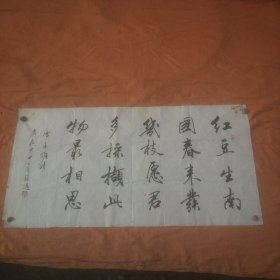 红豆生南
國春来發
幾枝愿君
多採擷此
物最相思
唐王維詩